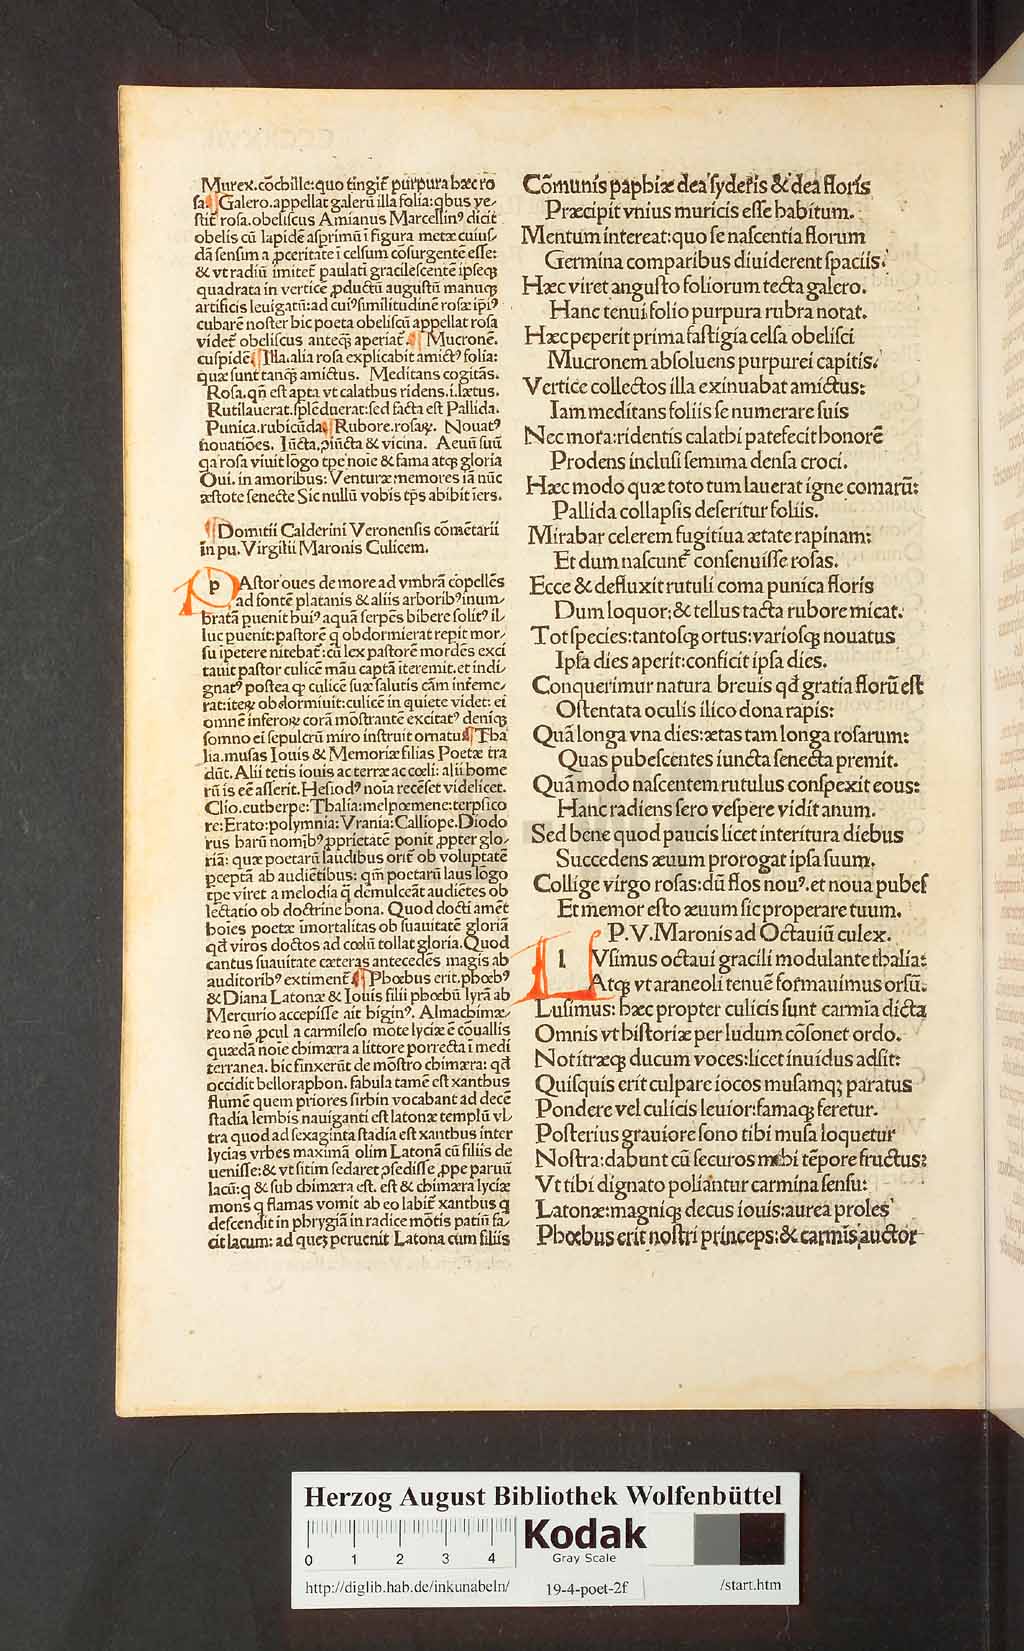 Murex.cõchille:quo tingit̃ purpura hæc ro
sa.¶Galero.appellat galerũ illa folia:qbus ve-
stit̃ rosa.obeliscus Amianus Marcellinꝰ dicit
obelis cũ lapidẽ asprimũ ĩ figura metæ cuius-
dã sensim a ꝓceritate ĩ celsum cõsurgentẽ esse:
& vt radiũ imitet̃ paulatĩ gracilescentẽ ipseqꝫ
quadrata in vertice ꝓductũ augustũ manuqꝫ
artificis leuigatũ:ad cuiꝰsimilitudinẽ rosæ ipiꝰ
cubarẽ noster hic poeta obeliscũ appellat rosa
videt̃ obeliscus anteqꝫ aperiat̃.¶ Mucronẽ.
cuspidẽ.¶Illa.alia rosa explicabit amictꝰ folia:
quæ sunt tanqꝫ amictus. Meditans cogitãs.
Rosa.qñ est apta vt calathus ridens.i.lætus.
Rutilauerat.splẽduerat:sed facta est Pallida.
Punica.rubicũda.¶Rubore.rosaꝝ. Nouatꝰ
nouatiões. Iũcta.ꝓiũcta & vicina. Aeuũ suũ
qa rosa viuit lõgo tpe noie & fama atqꝫ gloria
Oui. in amoribus: Venturæ memores iã nũc
æstote senecte Sic nullũ vobis tp̃s abibit iers.
¶Domitii Calderini Veronensis cõmẽtarii
in pu. Virgilii Maronis Culicem.
pAstor oues de more ad vmbrã cõpellẽs
ad fontẽ platanis & aliis arboribꝰinum-
bratã puenit huiꝰ aquã serpẽs bibere solitꝰ il-
luc puenit:pastorẽ q obdormierat repit mor-
su ipetere nitebat̃: cũ lex pastorẽ mordẽs exci
tauit pastor culicẽ mãu captã iteremit.et indi-
gnatꝰ postea qꝫ culicẽ suæ salutis cãm inteme-
rat:iteꝝ obdormiuit:culicẽ in quiete videt: ei
omnẽ inferoꝝ corã mõstrantẽ excitatꝰ deniqꝫ
somno ei sepulcrũ miro instruit ornatu.¶Tha
lia.musas Iouis & Memoriæ filias Poetæ tra
dũt. Alii tetis iouis ac terræ ac cœli: alii home
rũ is eẽ asserit. Hesiodꝰ noia recẽset videlicet.
Clio.eutherpe: Thalia:melpœmene:terpsico
re:Erato:polymnia: Vrania: Calliope. Diodo
rus harũ nomĩbꝰ ꝓprietatẽ ponit ꝓpter glo-
riã: quæ poetarũ laudibus orit̃ ob voluptatẽ
pceptã ab audiẽtibus: qm̃ poetarũ laus lõgo
tpe viret a melodia q̃ demulceãt audiẽtes ob
lectatio ob doctrine bona. Quod docti amẽt
hoies poetæ imortalitas ob suauitatẽ gloriã
qd̃ viros doctos ad cœlũ tollat gloria. Quod
cantus suauitate cæteras antecedẽs magis ab
auditoribꝰ extiment̃.¶Phœbus erit.phœbꝰ
& Diana Latonæ & Iouis filii phœbũ lyrã ab
Mercurio accepisse ait higinꝰ. Almachimæ-
reo nõ ꝓcul a carmileso mõte lyciæ ẽ cõuallis
quædã noie chimæra a littore porrecta ĩ medi
terranea. hic finxerũt de mõstro chimæra: qd̃
occidit bellorapbon. fabula tamẽ est xanthus
flumẽ quem priores sirbin vocabant ad decẽ
stadia lembis nauiganti est latonæ templũ vl-
tra quod ad sexaginta stadia est xanthus inter
lycias vrbes maximã olim Latonã cũ filiis de
uenisse:& vt sitim sedaret ꝓsedisse ꝓpe paruũ
lacũ:q & sub chimæra est. est & chimæra lyciæ
mons q flamas vomit ab eo labit̃ xanthus q
descendit in phrygiã in radice mõtis patiũ fa-
cit lacum: ad queꝫ peruenit Latona cum filiis
Cõmunis paphiæ dea syderis & dea floris
Præcipit vnius muricis esse habitum.
Mentum intereat:quo se nascentia florum
Germina comparibus diuiderent spaciis.
Hæc viret angusto foliorum tecta galero.
Hanc tenui folio purpura rubra notat.
Hæc peperit prima fastigia celsa obelisci
Mucronem absoluens purpurei capitis.
Vertice collectos illa exinuabat amictus:
Iam meditans foliis se numerare suis
Nec mora:ridentis calathi patefecit honorẽ
Prodens inclusi semima densa croci.
Hæc modo quæ toto tum lauerat igne comarũ:
Pallida collapsis deseritur foliis.
Mirabar celerem fugitiua ætate rapinam:
Et dum nascunt̃ consenuisse rosas.
Ecce & defluxit rutuli coma punica floris
Dum loquor:& tellus tacta rubore micat.
Tot species:tantosqꝫ ortus:variosqꝫ nouatus
Ipsa dies aperit:conficit ipsa dies.
Conquerimur natura breuis qd̃ gratia florũ est
Ostentata oculis ilico dona rapis:
Quã longa vna dies:ætas tam longa rosarum:
Quas pubescentes iuncta senecta premit.
Quã modo nascentem rutulus conspexit eous:
Hanc radiens sero vespere vidit anum.
Sed bene quod paucis licet interitura diebus
Succedens æuum prorogat ipsa suum.
Collige virgo rosas:dũ flos nouꝰ.et noua pubes
Et memor esto æuum sic properare tuum.
P.V.Maronis ad Octauiũ culex.
lVsimus octaui gracili modulante thalia:
Atqꝫ vt araneoli tenuẽ formauimus orsũ:
Lusimus: hæc propter culicis sunt carmia dicta
Omnis vt historiæ per ludum cõsonet ordo.
Notitræqꝫ ducum voces:licet inuidus adsit:
Quisquis erit culpare iocos musamqꝫ paratus
Pondere vel culicis leuior:famaqꝫ feretur.
Posterius grauiore sono tibi musa loquetur
Nostra:dabunt cũ securos mihi tẽpore fructus:
Vt tibi dignato poliantur carmina sensu:
Latonæ:magniqꝫ decus iouis:aurea proles
Phœbus erit nostri princeps:& carmĩs auctor
Herzog August Bibliothek Wolfenbüttel
0 1 2 3 4
Kodak
Gray Scale
http://diglib.hab.de/inkunabeln/ 19-4-poet-2f /start.htm